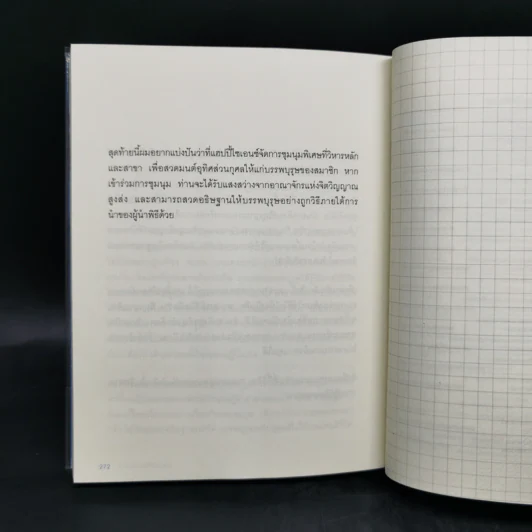 สุดท้ายนี้ผมอยากแบ่งปันว่าที่แฮปปี้ไซเอนซ์จัดการชุมนุมพิเศษที่วิหารหลัก
และสาขา เพื่อสวดมนต์อุทิศส่วนกุศลให้แก่บรรพบุรุษของสมาชิก หาก
เข้าร่วมการชุมนุม ท่านจะได้รับแสงสว่างจากอาณาจักรแห่งจิตวิญญาณ
สูงส่ง และสามารถสวดอธิษฐานให้บรรพบุรุษอย่างถูกวิธีภายใต้การ
นำของผู้นำพิธีด้วย